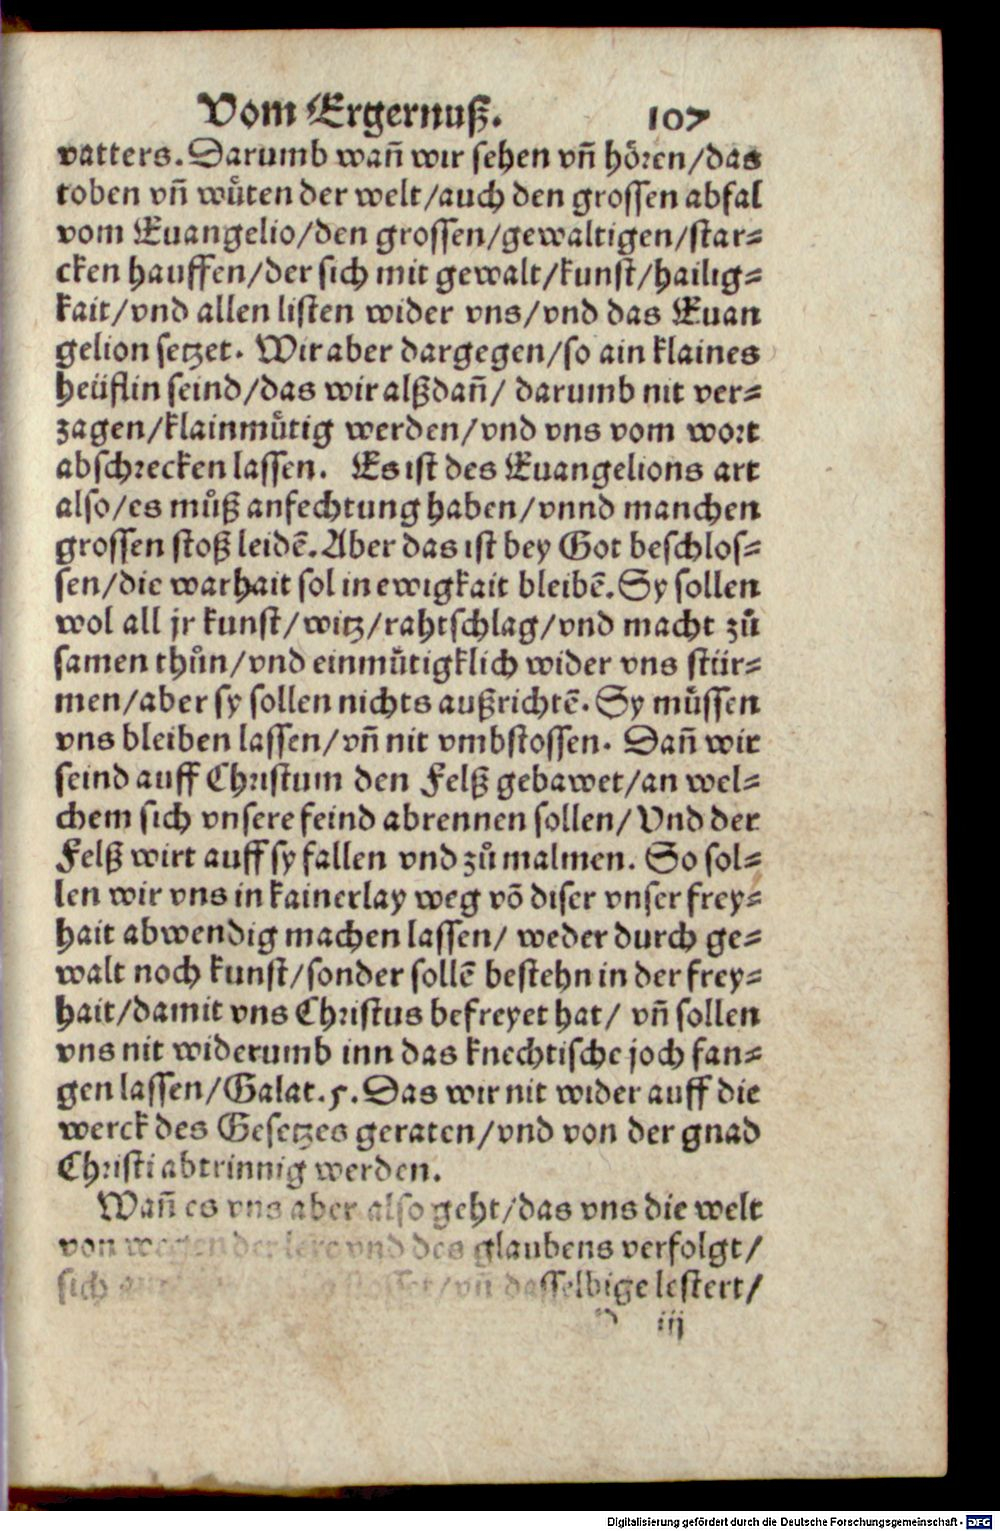 Vom Ergernuß. 107
vatters. Darumb wañ wir sehen vñ hören/das
toben vñ wůten der welt/auch den grossen abfal
vom Euangelio/den grossen/gewaltigen/star⸗
cken hauffen/der sich mit gewalt/kunst/hailig⸗
kait/vnd allen listen wider vns/vnd das Euan
gelion setzet. Wir aber dargegen/so ain klaines
heüflin seind/das wir alßdañ/ darumb nit ver⸗
zagen/klainmůtig werden/vnd vns vom wort
abschrecken lassen. Es ist des Euangelions art
also/es můß anfechtung haben/vnnd manchen
grossen stoß leidē. Aber das ist bey Got beschlos⸗
sen/die warhait sol in ewigkait bleibē. Sy sollen
wol all jr kunst/witz/rahtschlag/vnd macht zů
samen thůn/vnd einmůtigklich wider vns stür⸗
men/aber sy sollen nichts außrichtē. Sy můssen
vns bleiben lassen/vñ nit vmbstossen. Dañ wir
seind auff Christum den Felß gebawet/an wel⸗
chem sich vnsere feind abrennen sollen/ Vnd der
Felß wirt auff sy fallen vnd zů malmen. So sol⸗
len wir vns in kainerlay weg võ diser vnser frey⸗
hait abwendig machen lassen/ weder durch ge⸗
walt noch kunst/sonder sollē bestehn in der frey⸗
hait/damit vns Christus befreyet hat/ vñ sollen
vns nit widerumb inn das knechtische joch fan⸗
gen lassen/Galat. 5. Das wir nit wider auff die
werck des Gesetzes geraten/vnd von der gnad
Christi abtrinnig werden.
Wañ es vns aber also geht/das vns die welt
von wegen der lere vnd des glaubens verfolgt/
sich stosset/vñ dasselbige lestert/
iij
Digitalisierung gefördert durch die Deutsche Forschungsgemeinschaft - DFG